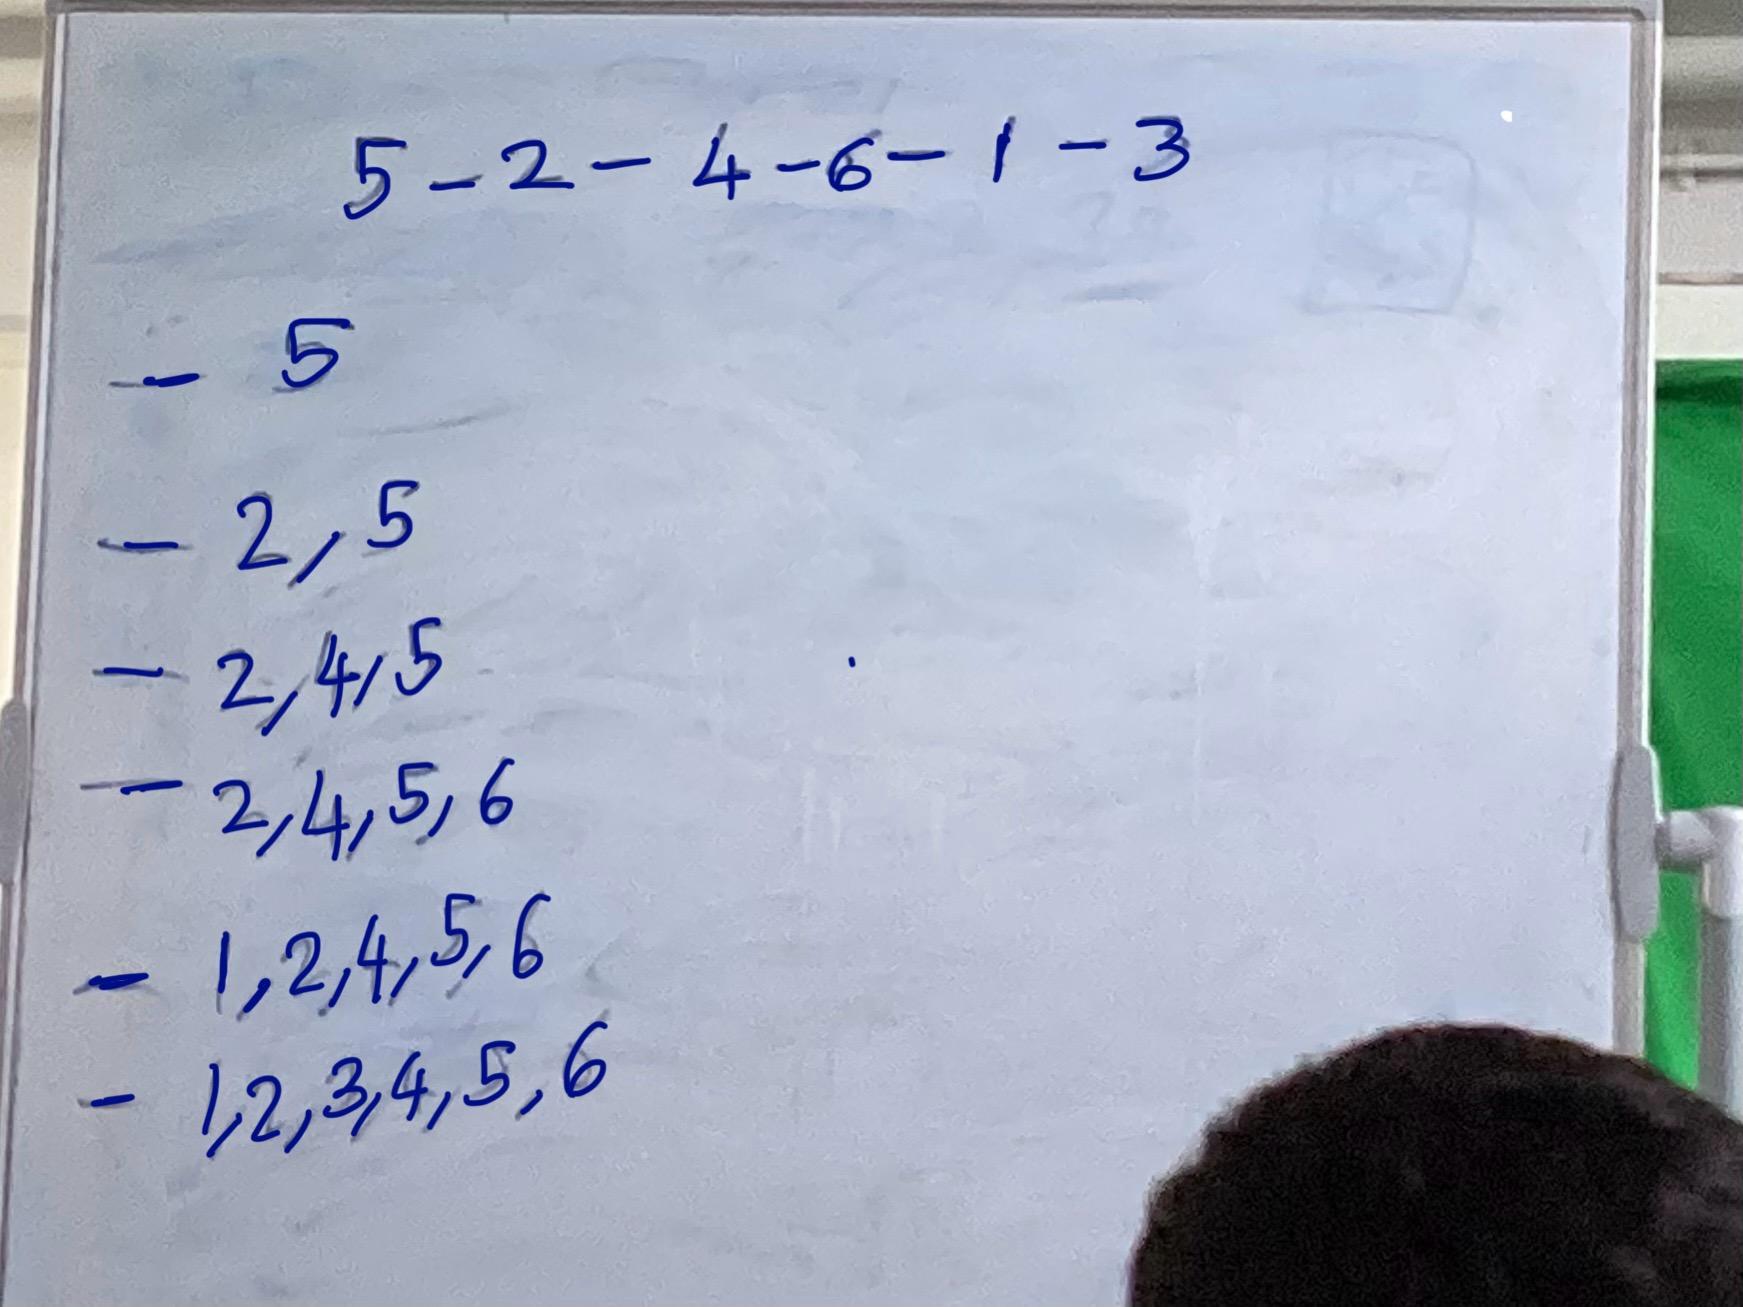 5 - 2 - 4 - 6 - 1 - 3
- 5
- 2, 5
- 2, 4, 5
- 2, 4, 5, 6
- 1, 2, 4, 5, 6
- 1, 2, 3, 4, 5, 6